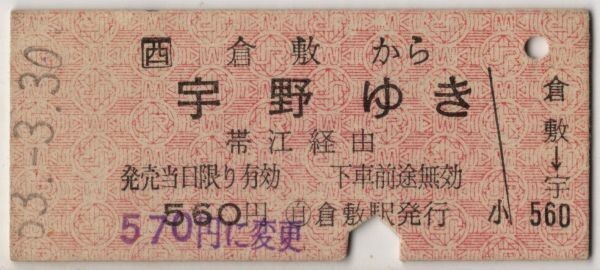 53.-3.30
西 倉敷 から
宇野ゆき
帯江経由
発売当日限り有効 下車前途無効
560円 自 倉敷駅発行
570円に変更
小
倉敷→宇
560